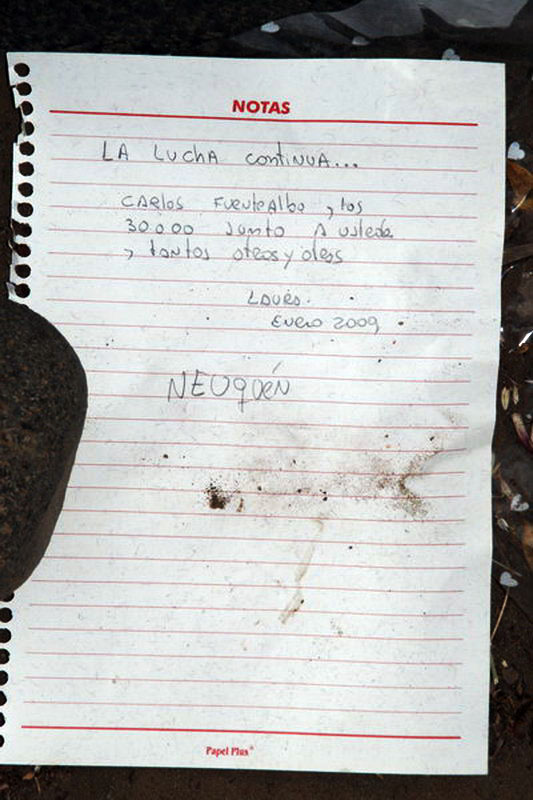 NOTAS
LA LUCHA CONTINUA...
CARLOS FUENTEALBA, los
30.000 JUNTO A ustedes
, tantos otros y otras
LAURA.
ENERO 2009
NEUQUÉN
Papel Plus®